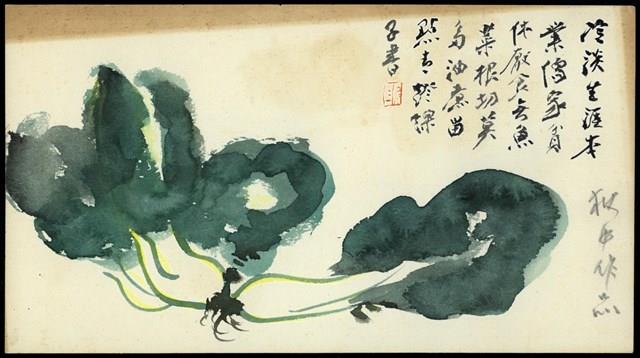 冷淡生涯本
業儒家貧
休厭食無魚
菜根切莫
多油煮留
點青燈課
子書
作品